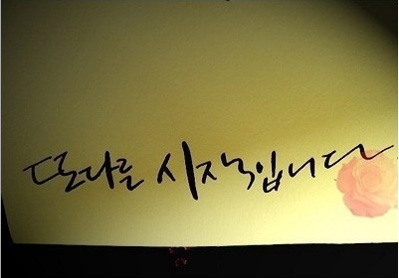 또다른 시작입니다